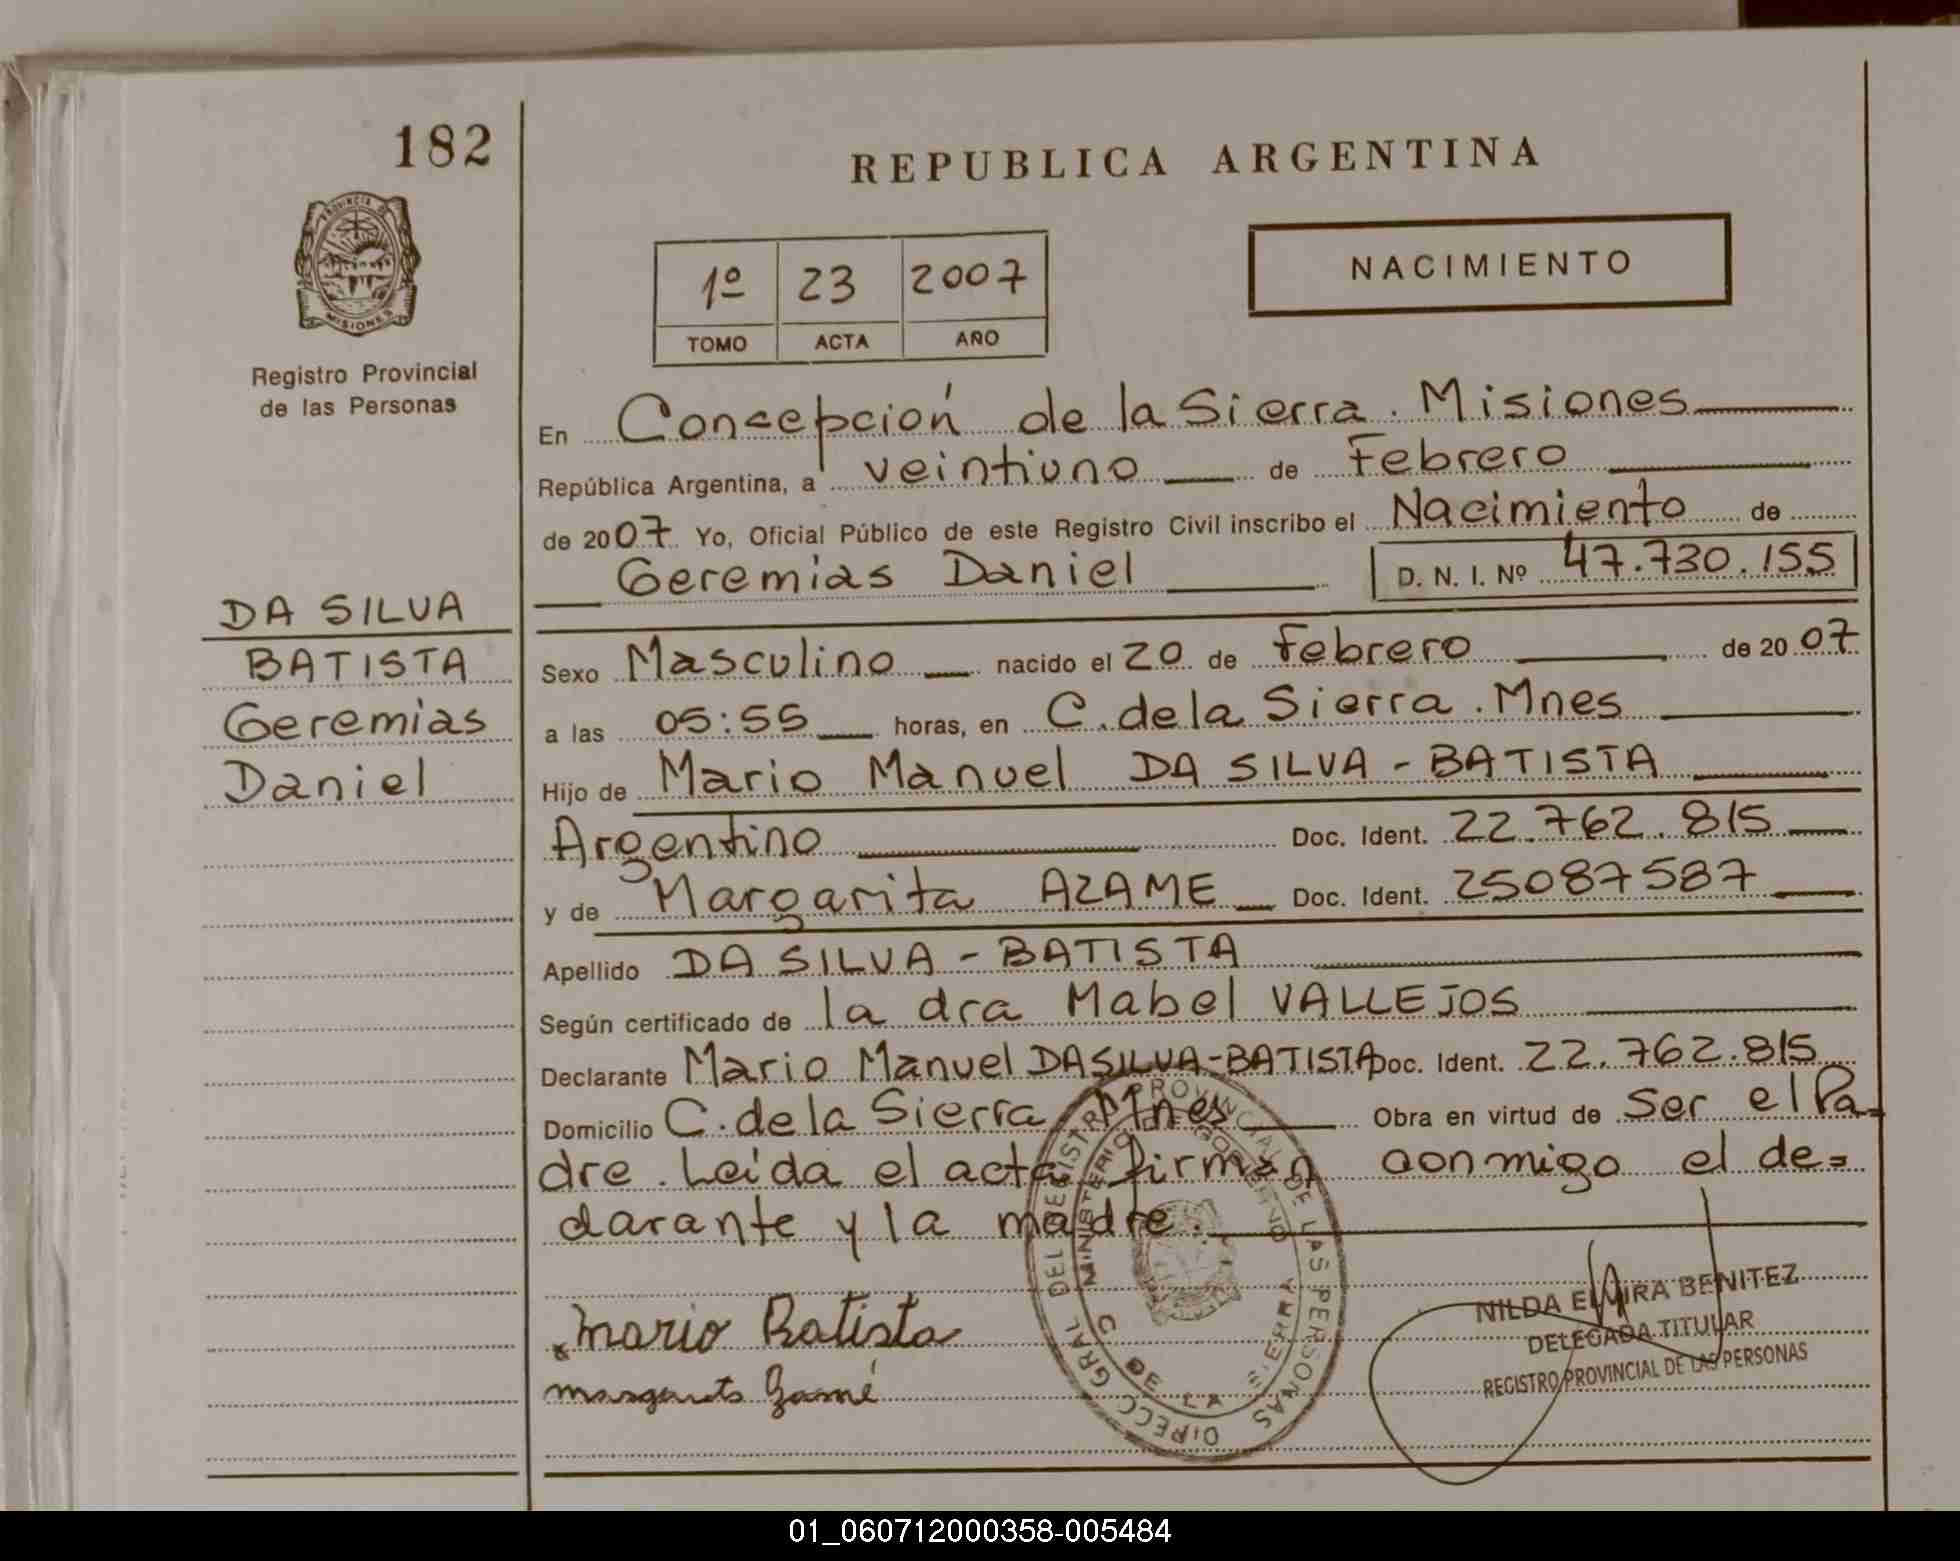 182
REPUBLICA ARGENTINA
PROVINCIA DE
MISIONES
Registro Provincial
de las Personas
1º 23 2007
TOMO ACTA AÑO
NACIMIENTO
En Concepción de la Sierra. Misiones
República Argentina, a veintiuno de Febrero
de 2007 Yo, Oficial Público de este Registro Civil inscribo el Nacimiento de
Geremias Daniel D. N. I. Nº 47.730.155
DA SILVA
BATISTA
Geremias
Daniel
Sexo Masculino nacido el 20 de Febrero de 2007
a las 05:55 horas, en C. de la Sierra. Mnes
Hijo de Mario Manuel DA SILVA - BATISTA
Argentino Doc. Ident. 22.762.815
y de Margarita AZAME Doc. Ident. 25087587
Apellido DA SILVA - BATISTA
Según certificado de la dra Mabel VALLEJOS
Declarante Mario Manuel DA SILVA-BATISTA Doc. Ident. 22.762.815
Domicilio C. de la Sierra Mnes Obra en virtud de ser el Pa-
dre. Leída el acta firman conmigo el de=
clarante y la madre.
DIRECC. GRAL. DEL REGISTRO PROVINCIAL DE LAS PERSONAS
MINISTERIO DE GOBIERNO
C. DE LA SIERRA
Mario Batista
NILDA ELVIRA BENITEZ
DELEGADA TITULAR
REGISTRO PROVINCIAL DE LAS PERSONAS
01_060712000358-005484